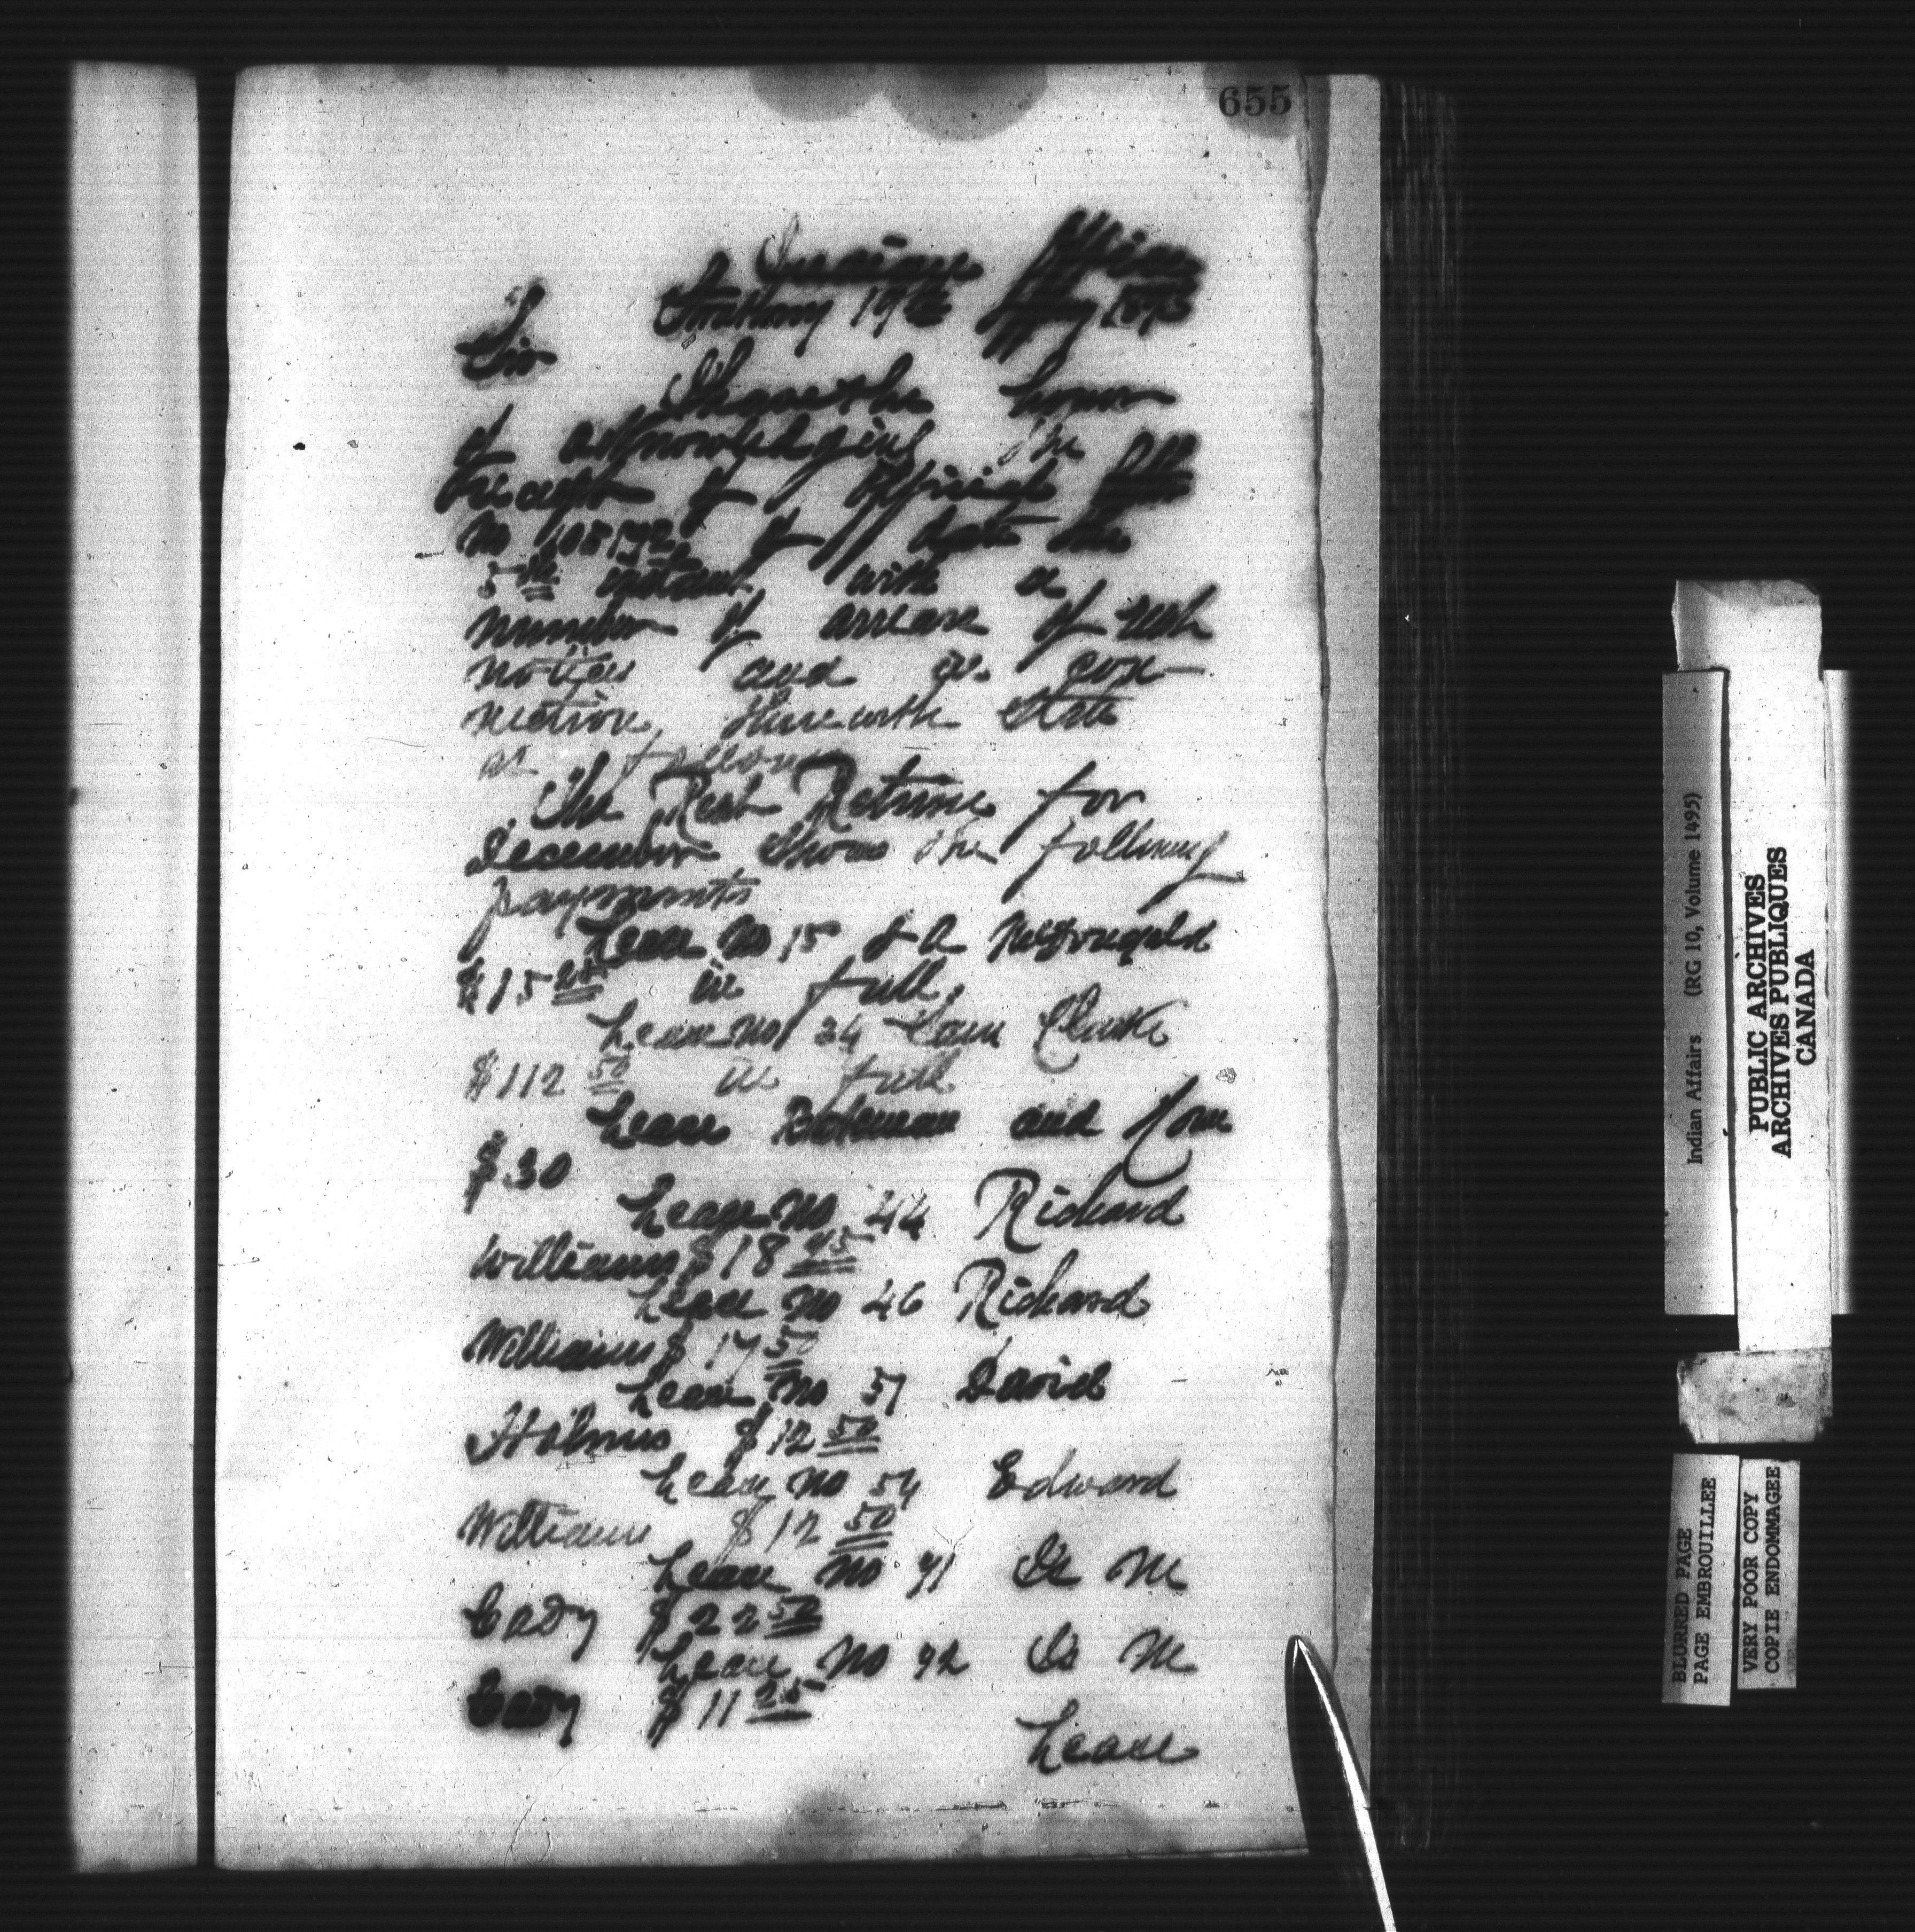 655
Indian Office
Strathroy 19th May 1893
Sir
I have the honor
of acknowledging the
receipt of official letter
No 108192 of date the
5th instant with a
number of arrears of rent
notices and in con-
nection therewith state
as follows
The Rent Returns for
December shows the following
payments
Lease No 15 McDougald
$15 in full,
Lease No 34 Sam Clark
$112 50 in full
Lease Bateman and
$30
Lease No 44 Richard
Williams $18 45
Lease No 46 Richard
Williams $17 50
Lease No 51 David
Holmes $12 50
Lease No 54 Edward
Williams $12 50
Lease No 71 M
Cady $22 50
Lease No 72 M
Cady $11 25
Lease
Indian Affairs (RG 10, Volume 1495)
PUBLIC ARCHIVES
ARCHIVES PUBLIQUES
CANADA
BLURRED PAGE
PAGE EMBROUILLEE
VERY POOR COPY
COPIE ENDOMMAGEE